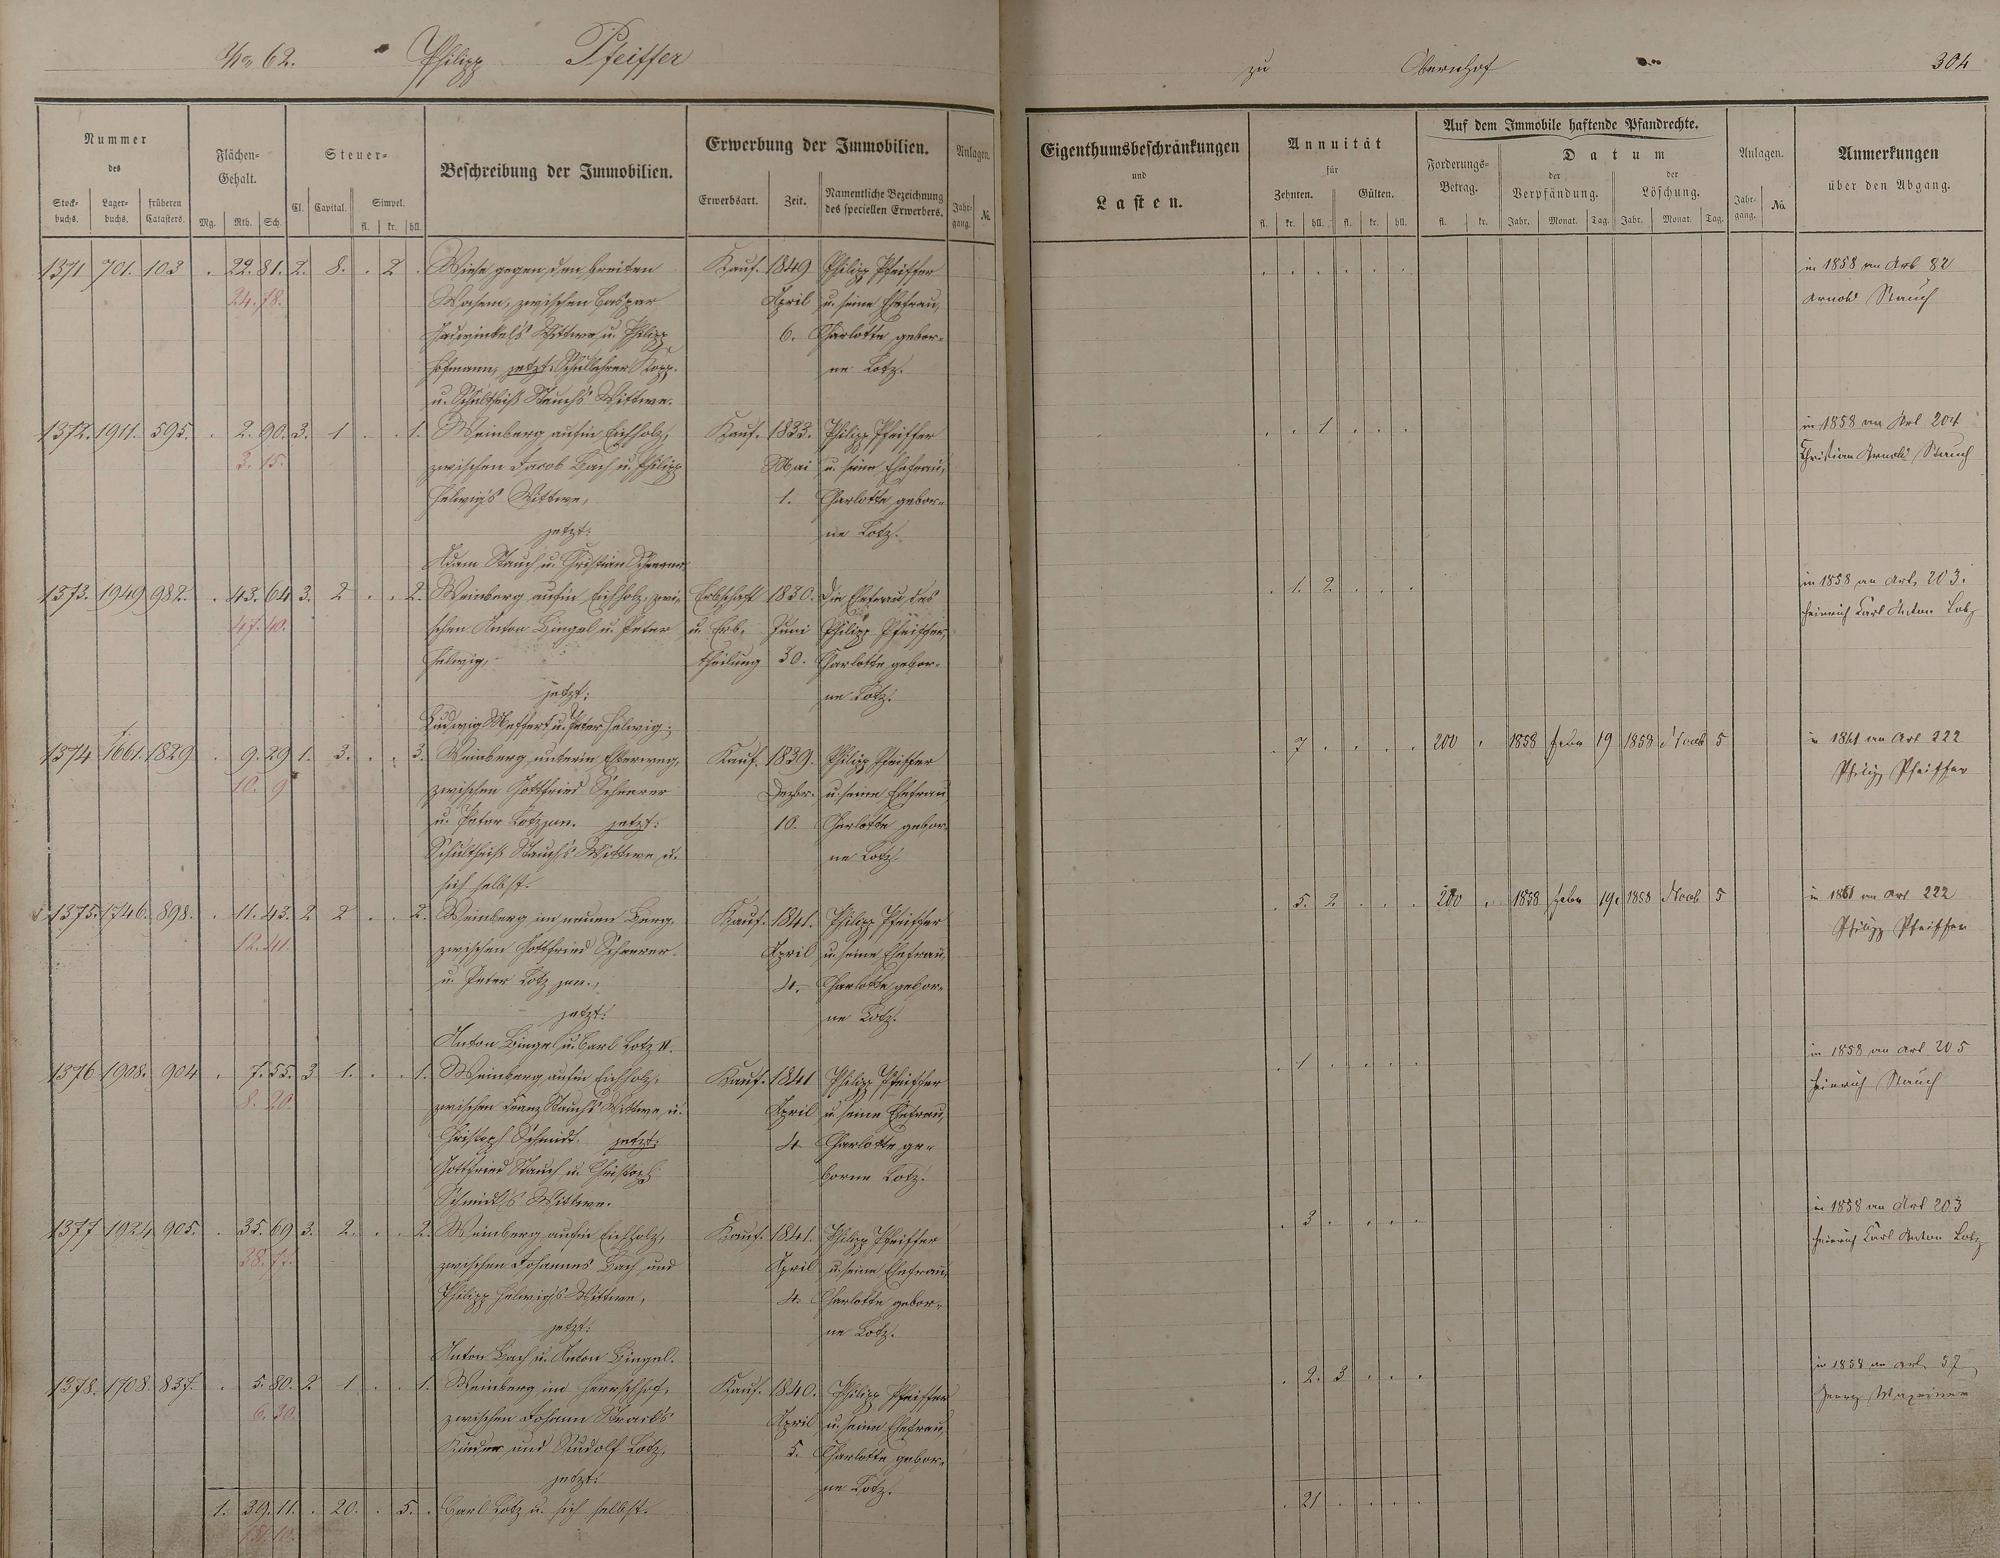 No 62. Philipp Pfeiffer
Nummer
des
Stock-buchs. Lager-buchs. früheren Catasters.
Flächen-Gehalt.
Mg. Rth. Sch.
Steuer-
Cl. Capital. Simpel.
fl. kr. hll.
Beschreibung der Immobilien.
Erwerbung der Immobilien.
Erwerbsart. Zeit. Namentliche Bezeichnung des speciellen Erwerbers.
Anlagen.
Jahr-gang. №.
1371 701. 103 . 22. 81. 2. 8. . 2 . Wiese gegen den breiten Kauf. 1849 Philipp Pfeiffer
24. 78. Wasem, zwischen Caspar April u. seine Ehefrau,
Wittwe u. Philipp 6. Charlotte gebor-
Hofmann, jetzt: Schullehrer Kopp ne Lotz.
u. Schultheiß Stauch's Wittwe.
1372. 1911. 595. . 2. 90. 3. 1 . . 1. Weinberg auf'm Eichholz, Kauf. 1833. Philipp Pfeiffer
3. 15. zwischen Jacob Bach u. Philipp Mai u. seine Ehefrau,
Helwig's Wittwe, 1. Charlotte gebor-
jetzt: ne Lotz.
Adam Stauch u. Christian Scheerer.
1373. 1949 982. . 43. 64 3. 2 . . 2. Weinberg auf'm Eichholz, zwi- Erbschaft 1830. Die Ehefrau des
47. 40. schen Anton Bingel u. Peter u. Erb- Juni Philipp Pfeiffer,
Helwig, theilung 30. Charlotte gebor-
jetzt: ne Lotz.
Ludwig Meffert u. Peter Helwig.
1374 1661. 1829 . 9. 29 1. 3. . . 3. Weinberg unterm Kauf. 1839. Philipp Pfeiffer
10. 9 zwischen Gottfried Scheerer Dezbr. u. seine Ehefrau
u. Peter Lotz jun. jetzt: 10. Charlotte gebor-
Schultheiß Stauch's Wittwe u. ne Lotz.
sich selbst.
1375. 1746. 898. . 11. 43. 2 2 . . 2. Weinberg im neuen Berg, Kauf. 1841. Philipp Pfeiffer
12. 41 zwischen Gottfried Scheerer April u. seine Ehefrau,
u. Peter Lotz jun., 4. Charlotte gebor-
jetzt: ne Lotz.
Anton Bingel u. Carl Lotz II.
1376 1908. 904 . 7. 55. 3 1. . . 1. Weinberg auf'm Eichholz, Kauf. 1841 Philipp Pfeiffer
8. 20. zwischen Franz Stauch's Wittwe u. April u. seine Ehefrau,
Christoph Schmidt. jetzt: 4. Charlotte ge-
Gottfried Stauch u. Christoph borne Lotz.
Schmidt's Wittwe.
1377 1924 905. . 35. 69 3. 2. . . 2. Weinberg auf'm Eichholz, Kauf. 1841. Philipp Pfeiffer
38. 77. zwischen Johannes Bach und April u. seine Ehefrau,
Philipp Helwig's Wittwe, 4. Charlotte gebor-
jetzt: ne Lotz.
Anton Bach u. Anton Bingel.
1378. 1708. 837. . 5. 80. 2 1 . . 1. Weinberg im Herrschhof, Kauf. 1840. Philipp Pfeiffer
6. 30. zwischen Johann April u. seine Ehefrau,
Kinder und Rudolf Lotz, 5. Charlotte gebor-
jetzt: ne Lotz.
1. 39. 11. . 20. . 5. . Carl Lotz u. sich selbst.
151. 10.
zu Obernhof 304
Eigenthumsbeschränkungen
und
Lasten.
Annuität
für
Zehnten. Gülten.
fl. kr. hll. fl. kr. hll.
Auf dem Immobile haftende Pfandrechte.
Forderungs-Betrag.
fl. kr.
Datum
der Verpfändung. der Löschung.
Jahr. Monat. Tag. Jahr. Monat. Tag.
Anlagen.
Jahr-gang. No.
Anmerkungen
über den Abgang.
. . . . . . in 1858 an Art 82
Arnold Stauch
. . 1 . . . in 1858 an Art 204
Christian Arnold Stauch
. 1. 2 . . . in 1858 an Art. 203.
Heinrich Carl Anton Lotz
. 7 . . . . 200 . 1858 Febr 19 1858 Novb 5 in 1861 an Art 222
Philipp Pfeiffer
. 5. 2 . . . 200 . 1858 Febr 19. 1858 Novb 5 in 1861 an Art 222
Philipp Pfeiffer
. 1 . . . . in 1858 an Art 205
Heinrich Stauch
. 3 . . . . in 1858 an Art 203
Heinrich Carl Anton Lotz
. 2. 3 . . . in 1858 an Art. 57
Georg
. 21 . . . .